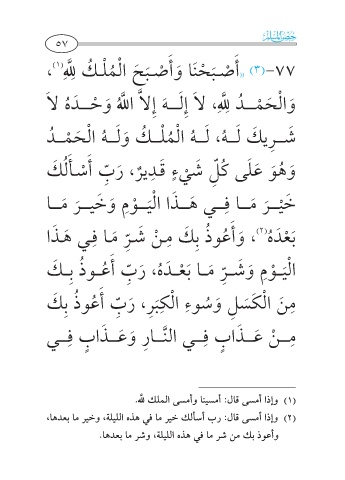 حصن المسلم
٥٧
٧٧-(٣) «أَصْبَحْنَا وَأَصْبَحَ الْمُلْكُ لِلَّهِ(١)،
وَالْحَمْدُ لِلَّهِ، لاَ إِلَهَ إِلاَّ اللَّهُ وَحْدَهُ لاَ
شَرِيكَ لَهُ، لَهُ الْمُلْكُ وَلَهُ الْحَمْدُ
وَهُوَ عَلَى كُلِّ شَيْءٍ قَدِيرٌ، رَبِّ أَسْأَلُكَ
خَيْرَ مَا فِي هَذَا الْيَوْمِ وَخَيرَ مَا
بَعْدَهُ(٢)، وَأَعُوذُ بِكَ مِنْ شَرِّ مَا فِي هَذَا
الْيَوْمِ وَشَرِّ مَا بَعْدَهُ، رَبِّ أَعُوذُ بِكَ
مِنَ الْكَسَلِ وَسُوءِ الْكِبَرِ، رَبِّ أَعُوذُ بِكَ
مِنْ عَذَابٍ فِي النَّارِ وَعَذَابٍ فِي
(١) وإذا أمسى قال: أمسينا وأمسى الملك لله.
(٢) وإذا أمسى قال: رب أسألك خير ما في هذه الليلة، وخير ما بعدها،
وأعوذ بك من شر ما في هذه الليلة، وشر ما بعدها.